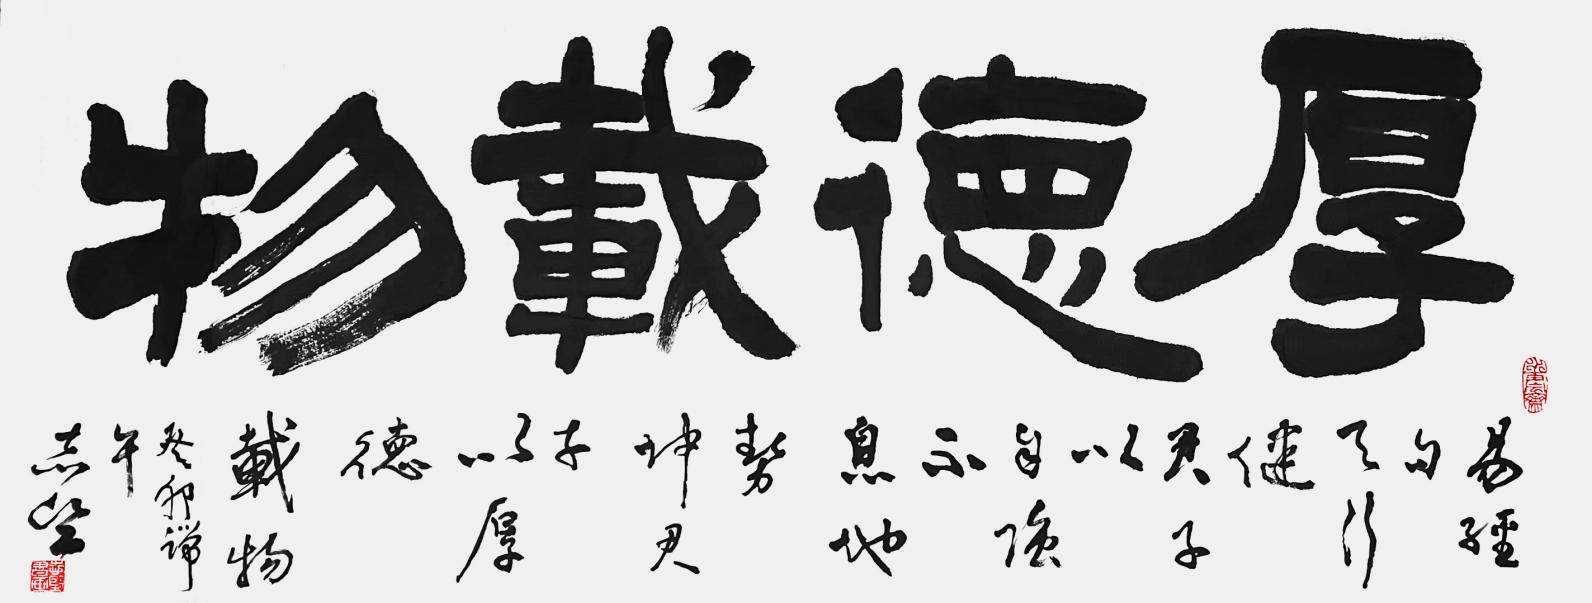 厚德載物
易經
句
天行
健
君子
以
自強
不
息地
勢
坤君
子
以厚
德
載物
癸卯端
午
志堅